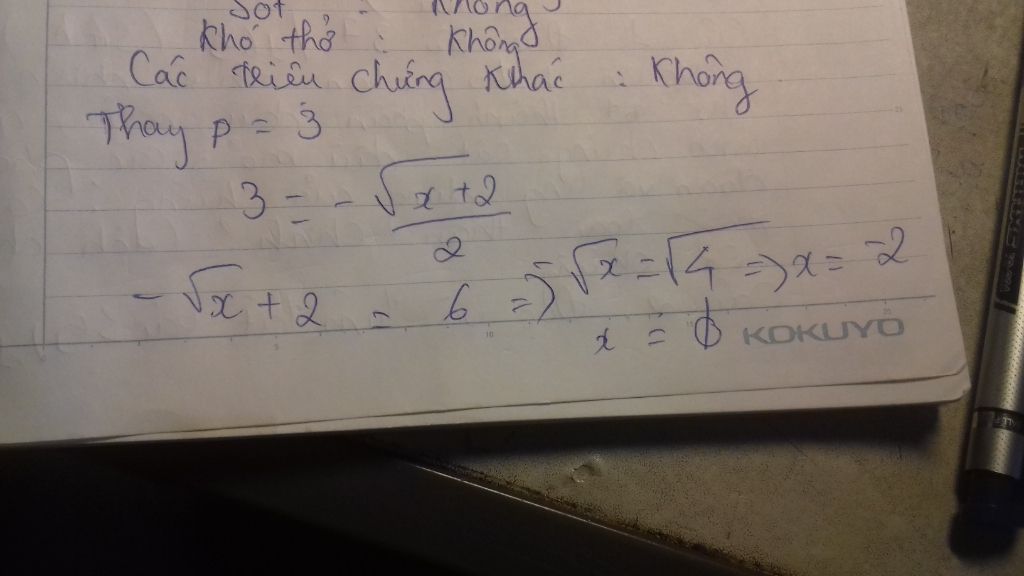 Sốt : Không
Khó thở : Không
Các triệu chứng khác : Không
Thay p = 3
3 = - √x+2 / 2
- √x + 2 = 6 => - √x = √4 => x = -2
x = ϕ
KOKUYO